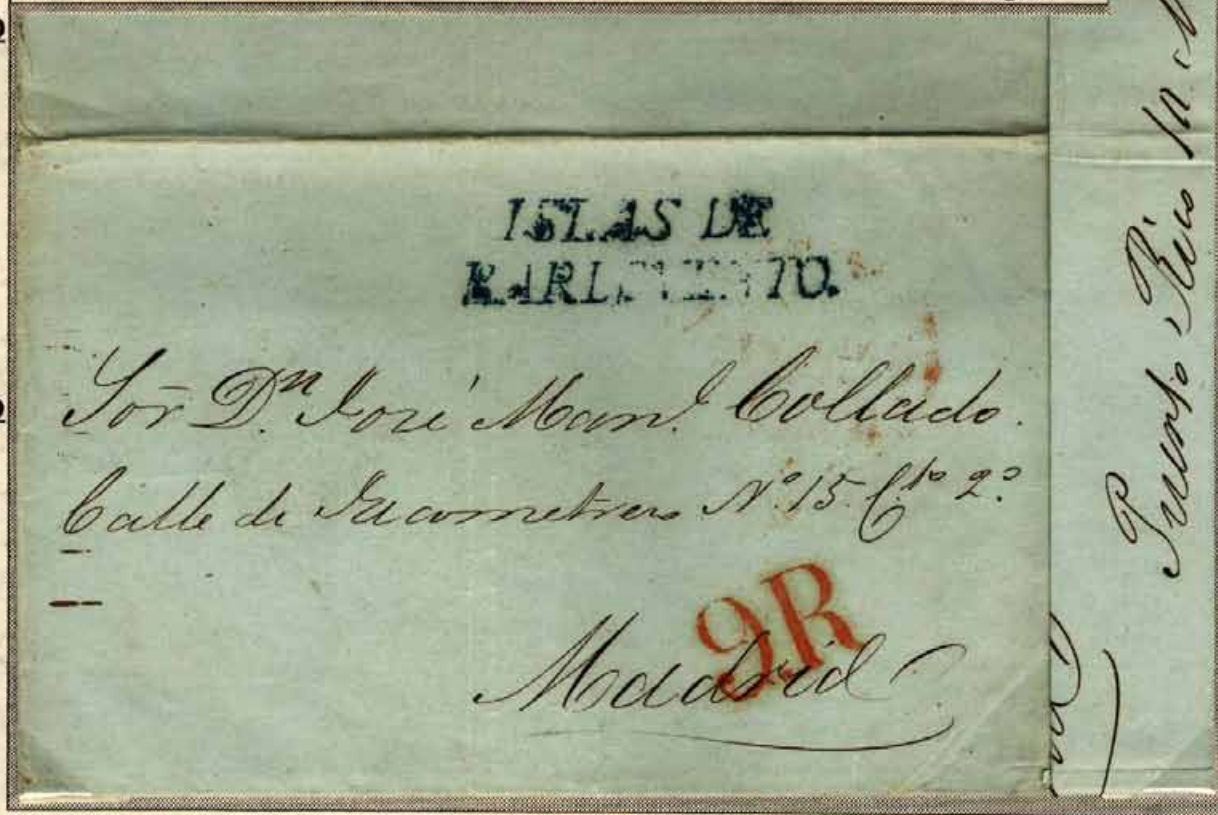 ISLAS DE
BARLOVENTO.
Sor Dn. José Manl. Collado.
Calle de Jacometrezo Nº 15. Cto 2º
9R
Madrid
Puerto Rico